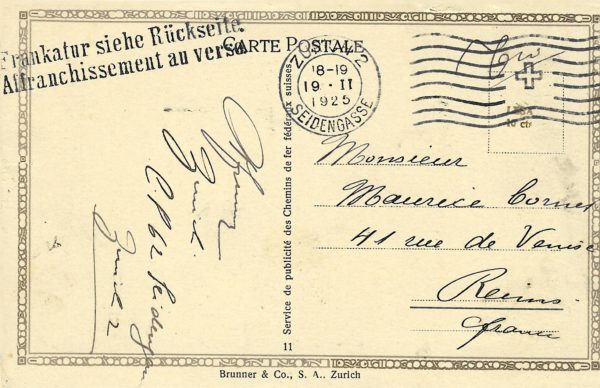 Frankatur siehe Rückseite.
Affranchissement au verso.
CARTE POSTALE
18-19
19·II
1925
SEIDENGASSE
10 cts
Zürich
Seidengasse
Zürich 2
Service de publicité des Chemins de fer fédéraux suisses
11
Monsieur
Maurice Cornet
41 rue de Venise
Reims
france
Brunner & Co., S. A., Zurich